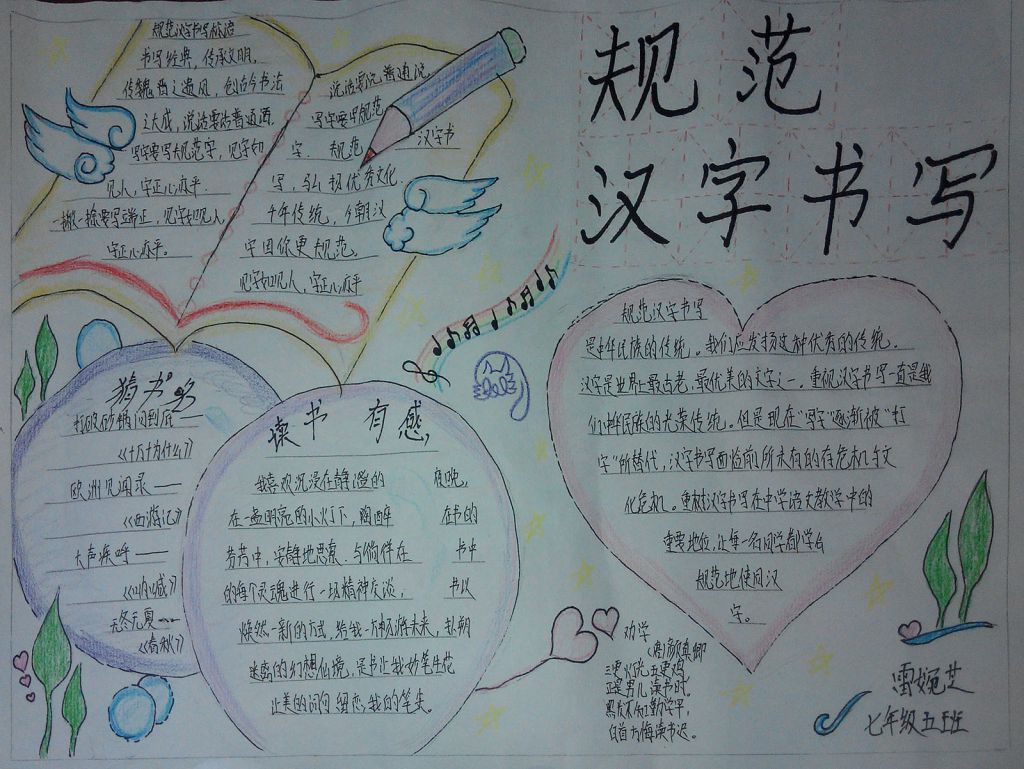 规范
汉字书写
规范汉字书写标语
书写经典，传承文明。
传魏晋之遗风，创古今书法
之大成，说话要说普通话
写字要写规范字，见字如
见人，字正心亦平.
一撇一捺要写端正，见字如见人
字正心亦平。
说话要说普通话
写字要中规范
字. 规范 汉字书
写，弘扬优秀文化.
千年传统，今朝汉
字因你更规范。
见字如见人，字正心亦平
猜书名
打破砂锅问到底
《十万个为什么?》
欧洲见闻录——
《西游记》
大声疾呼——
《呐喊》
无冬无夏——
《春秋》
读书 有感
我喜欢沉浸在静谧的 夜晚,
在一盏明亮的小灯下，陶醉 在书的
芬芳中，安静地思索.与徜徉在 书中
的每个灵魂进行一场精神交谈， 书以
焕然一新的方式，给我一
迷惑的幻想仙境，是书让我妙笔生花
让美的词句留恋，我的笔尖。
规范汉字书写
是中华民族的传统。我们应发扬这种优秀的传统.
汉字是世界上最古老、最优美的文字之一。重视汉字书写一直是我
们中华民族的光荣传统。但是现在"写字"逐渐被"打
字"所替代，汉字书写面临前所未有的存危机与文
化危机。重树汉字书写在中学语文教学中的
重要地位，让每一名同学都学会
规范地使用汉
字。
劝学
(唐)颜真卿
三更灯火五更鸡
正是男儿读书时，
黑发不知勤学早，
白首方悔读书迟。
雷婉芝
七年级五班